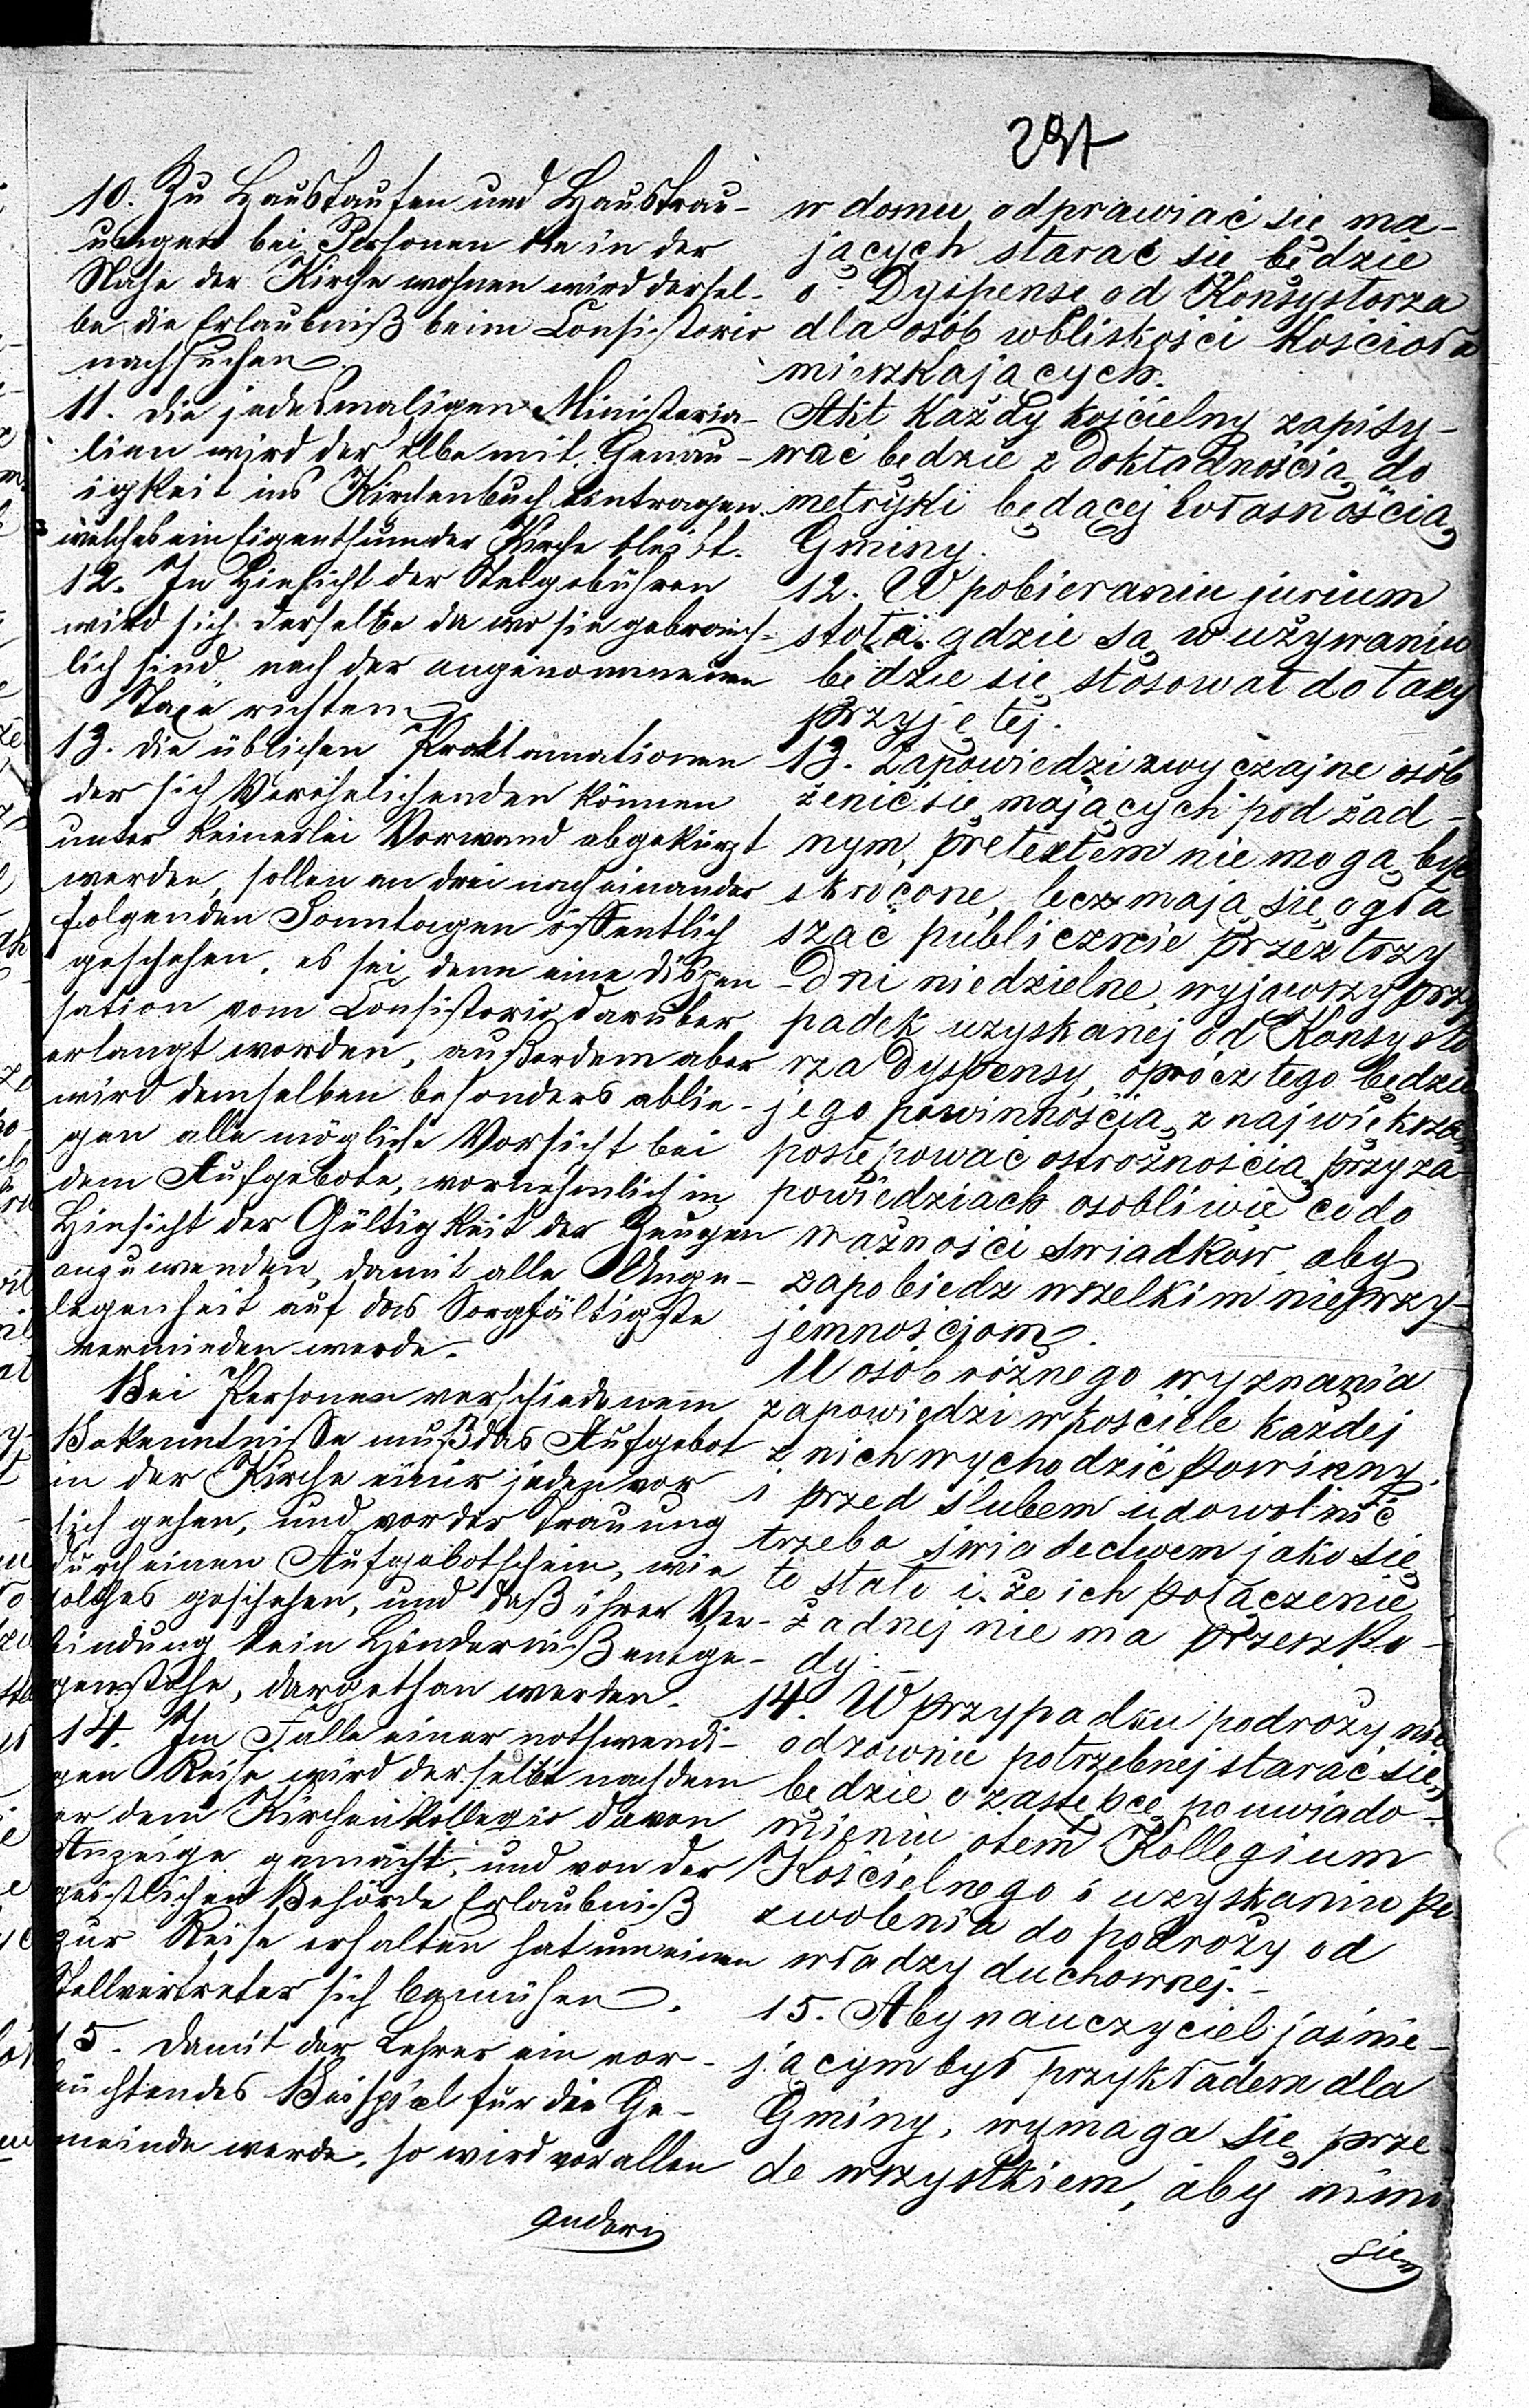 237
10. Zu Haustaufen und Haustrau-
ungen bei Personen die in der
Nähe der Kirche wohnen wird dersel-
be die Erlaubniß beim Consistorio
nachsuchen.
11. Die jedesmaligen Ministeria-
lien wird derselbe mit Genau-
igkeit ins Kirchenbuch eintragen.
welches ein Eigenthum der Kirche bleibt.
12. In Hinsicht der Stolgebühren
wird sich derselbe da wo sie gebräuch-
lich sind nach der angenommenen
Taxe richten.
13. Die üblichen Proklamationen
der sich Verehelichenden können
unter keinerlei Vorwand abgekürzt
werden, sollen an drei nach einander
folgenden Sonntagen öffentlich
geschehen, es sei denn eine Dispen-
sation vom Consistorio darüber
erlangt worden, außerdem aber
wird demselben besonders oblie-
gen alle mögliche Vorsicht bei
dem Aufgebote, vornehmlich in
Hinsicht der Gültigkeit der Zeugen
anzuwenden, damit alle Unge-
legenheit auf das Sorgfältigste
vermieden werde.
Bei Personen verschiedenem
Bekenntnisse muß das Aufgebot
in der Kirche einer jeden vor
sich gehen, und vor der Trauung
durch einen Aufgebotschein, wie
solches geschehen, und daß ihrer Ver-
bindung kein Hinderniß entge-
genstehe, dargethan werden.
14. Im Falle einer nothwendi-
gen Reise wird derselbe nachdem
er dem Kirchenkollegio davon
Anzeige gemacht, und von der
geistlichen Behörde Erlaubniß
zur Reise erhalten hat um einen
Stellvertreter sich bemühen.
15. Damit der Lehrer ein vor-
leuchtendes Beispiel für die Ge-
meinde werde, so wird vor allen
andern
w domu odprawiać się ma-
jących starać się będzie
o Dyspensę od Konsystorza
dla osób wbliskości Kościoła
mieszkających.
Akt każdy kościelny zapisy-
wać będzie z dokładnością do
metryki będącej własnością
Gminy.
12. W pobieraniu jurium
stola gdzie są w używaniu
będzie się stosował do taxy
przyjętej.
13. Zapowiedzi zwyczajne osób
żenić się mających pod żad-
nym pretextem nie mogą być
skrócone, lecz mają się ogła
szać publicznie przez trzy
Dni niedzielne, wyjąwszy przy
padek uzyskanej od Konsysto
rza Dyspensy, oprócz tego będzie
jego powinnością z największą
postępować ostrożnością przy za
powiedziach osobliwie co do
ważności swiadków, aby
zapobiedz wszelkim nieprzy-
jemnościom.
U osób różnego wyznania
zapowiedzi w kościele każdej
z nich wychodzić powinny
i przed ślubem udowolnić
trzeba świadectwem jako się
to stało i że ich połączeniu
żadnej nie ma przeszko-
dy.
14. W przypadku podroży nie
odzownie potrzebnej starać się
będzie o zastępcę, po uwiado-
mieniu otem Kollegium
Kościelnego i uzyskaniu po
zwolenia do podroży od
władzy duchownej.
15. Aby nauczyciel jaśnie-
jącym był przykładem dla
Gminy, wymaga się prze-
de wszystkiem, aby nimi
się